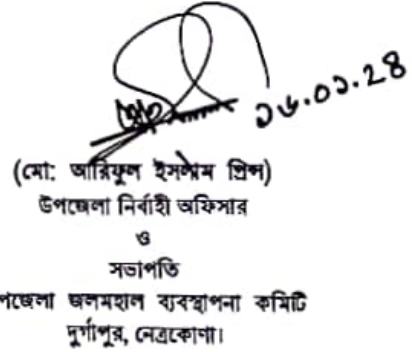 ১৬.০১.২৪
(মো: আরিফুল ইসলাম প্রিন্স)
উপজেলা নির্বাহী অফিসার
ও
সভাপতি
পজেলা জলমহাল ব্যবস্থাপনা কমিটি
দুর্গাপুর, নেত্রকোণা।